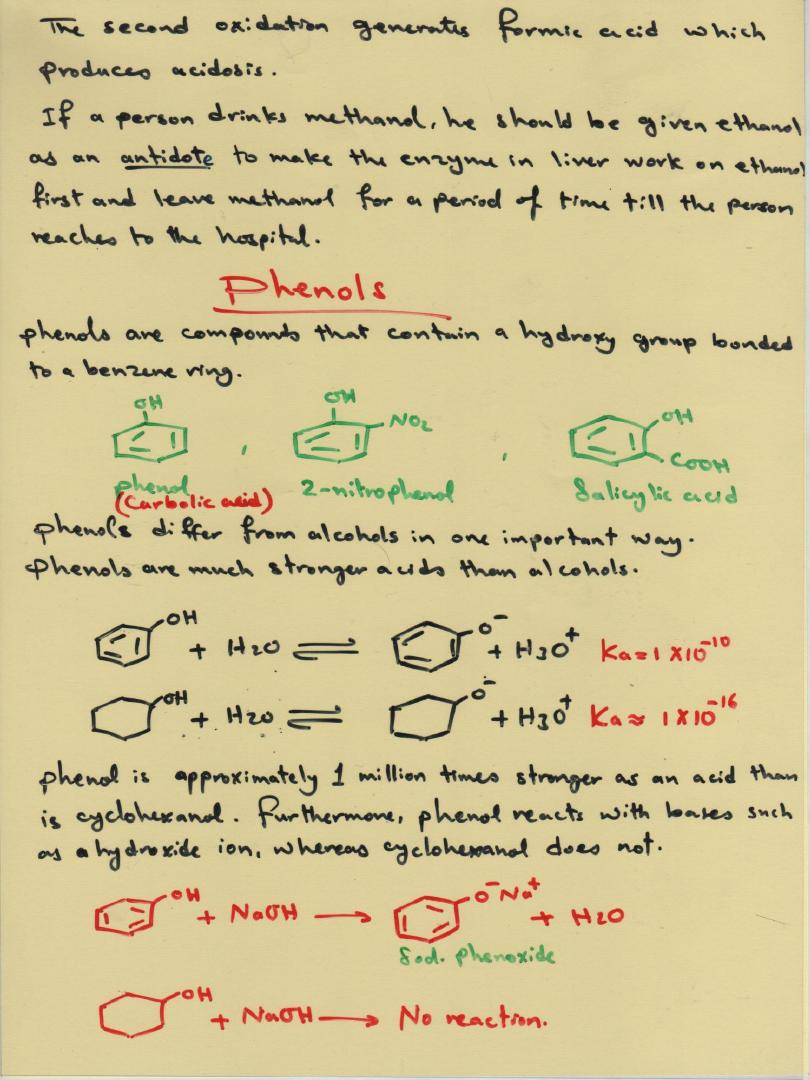 The second oxidation generates formic acid which
produces acidosis.
If a person drinks methanol, he should be given ethanol
as an antidote to make the enzyme in liver work on ethanol
first and leave methanol for a period of time till the person
reaches to the hospital.
Phenols
phenols are compounds that contain a hydroxy group bonded
to a benzene ring.
OH , OH NO2 , OH COOH
phenol 2-nitrophenol Salicylic acid
(Carbolic acid)
phenols differ from alcohols in one important way.
Phenols are much stronger acids than alcohols.
OH + H2O ⇌ O⁻ + H3O⁺ Ka = 1 X10⁻¹⁰
OH + H2O ⇌ O⁻ + H3O⁺ Ka ≈ 1 X10⁻¹⁶
phenol is approximately 1 million times stronger as an acid than
is cyclohexanol. Furthermore, phenol reacts with bases such
as a hydroxide ion, whereas cyclohexanol does not.
OH + NaOH → O⁻Na⁺ + H2O
Sod. phenoxide
OH + NaOH → No reaction.